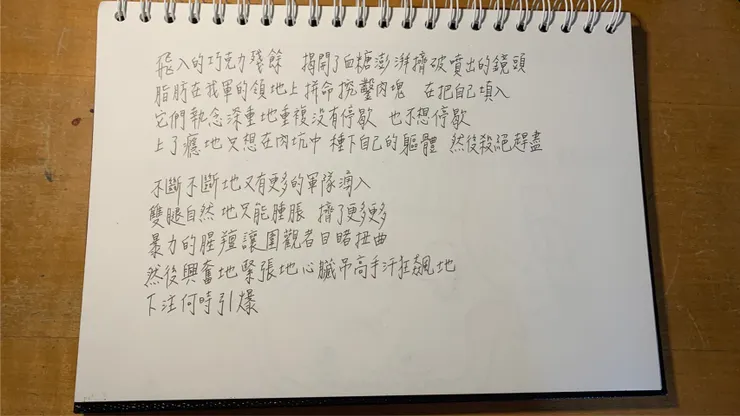 飛入的巧克力殘餘 揭開了白糖澎湃擠破噴出的鏡頭
脂肪在我軍的領地上拼命挖鑿肉塊 在把自己填入
它們執念深重地重複沒有停歇 也不想停歇
上了癮地只想在肉坑中 種下自己的軀體 然後殺絕趕盡
不斷不斷地又有更多的軍隊湧入
雙腿自然地只能腫脹 擠了更多更多
暴力的腥羶讓圍觀者目睹扭曲
然後興奮地緊張地心臟吊高手汗狂飆地
下注何時引爆